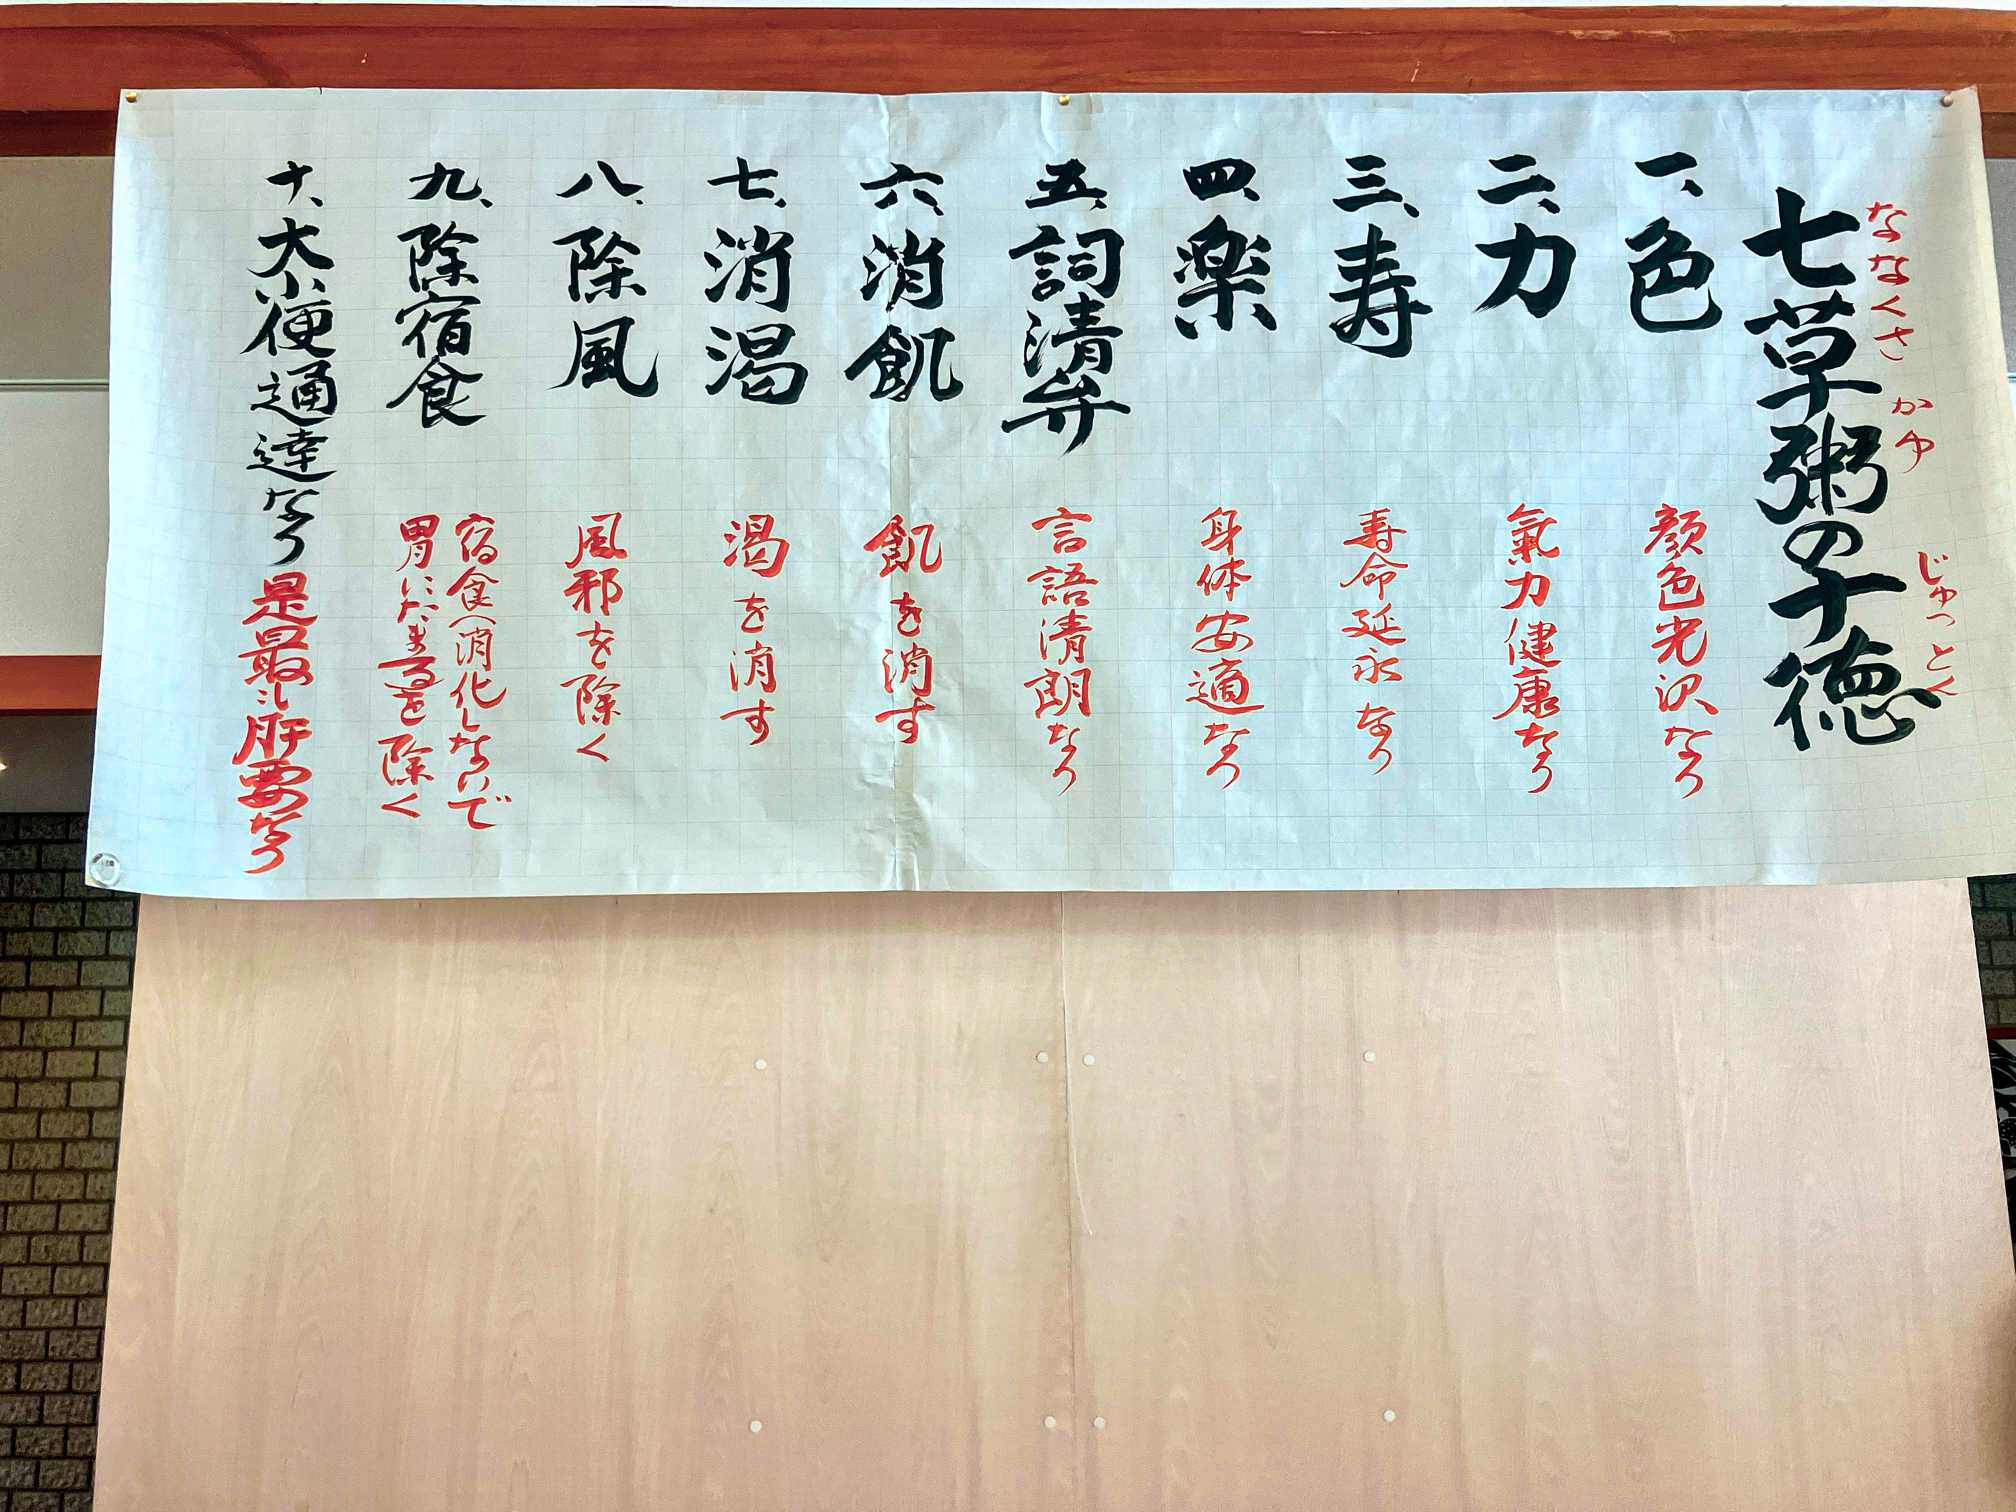 七草粥の十徳
ななくさ かゆ じゅっとく
一、色
顔色光沢なり
二、力
氣力健康なり
三、寿
寿命延永なり
四、楽
身体安適なり
五、詞清弁
言語清朗なり
六、消飢
飢を消す
七、消渇
渇を消す
八、除風
風邪を除く
九、除宿食
宿食（消化しないで
胃にたまる）を除く
十、大小便通達なり
是最も肝要なり